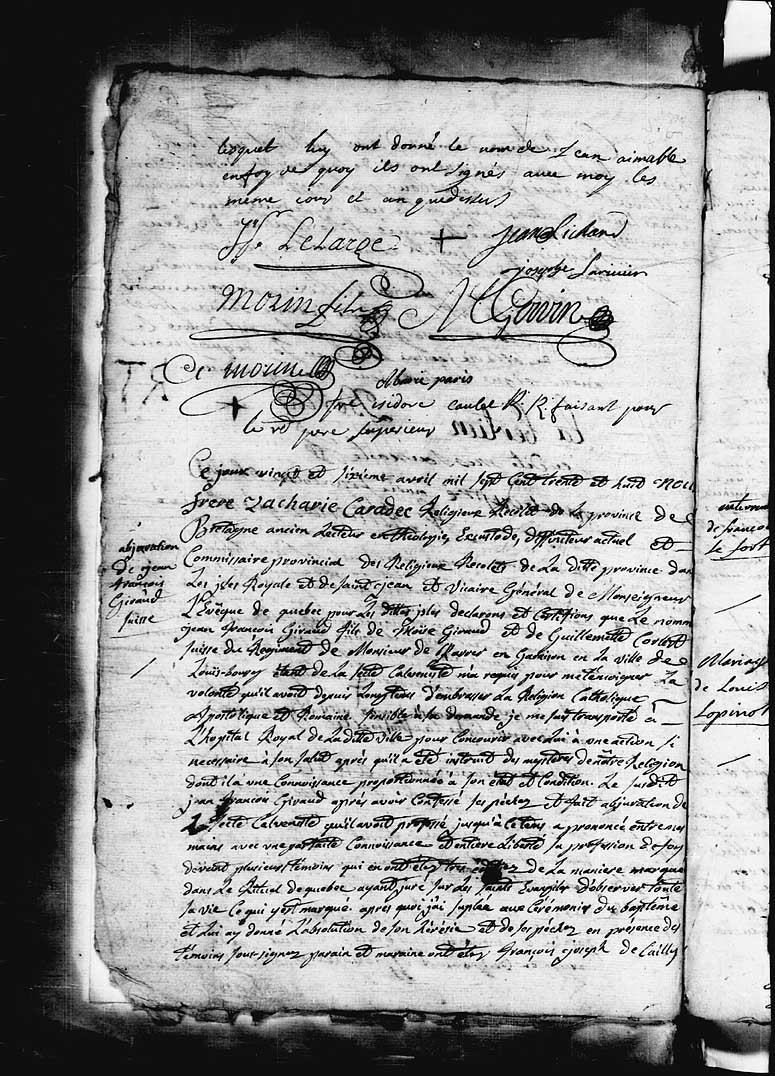 lesquel luy ont donné le nom de Jean aimable
en foy de quoy ils ont signés avec moy les
meme jour et an que dessus
LeLarge + Jean Richard
Joseph Lariviere
Morin fils
C morin
Marie paris
+ fre isidore caulet R. R. faisant pour
le rd pere superieur
abjuration
de jean
françois
Giraud
suisse
Ce jour vingt et sixieme avril mil sept cent trente et huit Nous
Frere Zacharie Caradec Religieux Recolet de la province de
Bretagne ancien Lecteur en theologie, Excustode, diffiniteur actuel et
Commissaire provincial des Religieux Recolets de La ditte province dans
Les isles Royale et de saint jean et Vicaire Général de Monseigneur
L'Evêque de quebec pour Les dites isles declarons et Certifions que Le nommé
jean François Giraud fils de Giraud et de Guillemette
suisse du Regiment de Monsieur de Karrer en Garnison en La ville de
Louis-bourg étant de La secte Calveniste m'a requis pour me temoigner La
volonté qu'il avoit depuis Longtems d'embrasser La Religion Catholique
Apostolique et Romaine sensible à sa demande je me suis transporté à
L'hopital Royal de La ditte ville pour Concourir avec Lui à une action si
necessaire à son salut après qu'il a été instruit des mysteres de nôtre Religion
dont il a une Connoissance proportionnée à son état et Condition. Le susdit
jean François Giraud après avoir Confessé ses pechez et fait abjuration de
secte Calveniste qu'il avoit professé jusqu'à ce tems a prononcé entre mes
mains avec une parfaite Connoissance et entiere Liberté sa profession de foy
devant plusieurs temoins qui en ont été tres de La maniere marquée
dans Le Rituel de quebec ayant juré sur Les saints Evangiles d'observer toute
sa vie Ce qui y est marqué après quoi j'ai suplée aux Cérémonies du baptême
et Lui ay donné L'absolution de son hérésie et de ses pechez en presence des
témoins soussignez parain et maraine ont étés François joseph de Cailly
de françois
Le fort
Mariage
de Louis
Lopinot